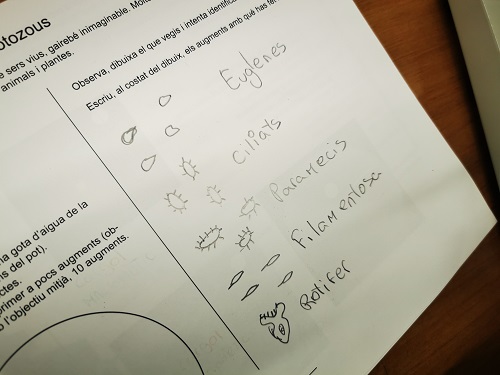 otozous
e sers vius, gairebé inimaginable.
animals i plantes.
Observa, dibuixa el que vegis i intenta
Escriu, al costat del dibuix, els augments amb què has
Euglenes
Ciliats
Paramecis
Filamentosa
Rotífer
na gota d'aigua de la
ns del pot).
ctes.
primer a pocs augments (ob-
l'objectiu mitjà, 10 augments.